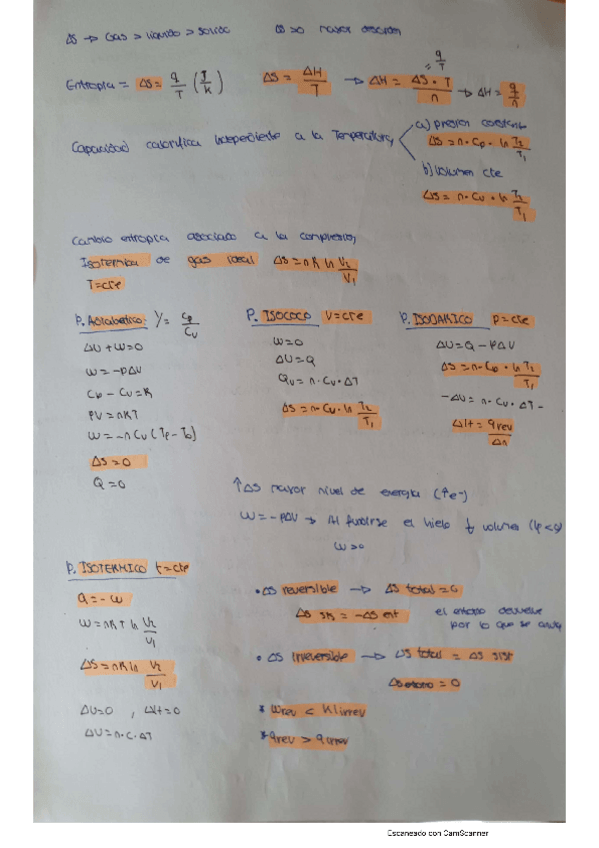 ΔS → Gas > líquido > sólido    ΔS>0 mayor desorden
Entropía = ΔS = q/T (J/K)    ΔS = ΔH/T → ΔH = ΔS · T/n → ΔH = q/n
= q/T
Capacidad calorífica independiente a la Temperatura
a) presión constante
ΔS = n · Cp · ln T2/T1
b) volumen cte
ΔS = n · Cv · ln T2/T1
Cambio entropía asociado a la compresión
Isotérmica de gas ideal    ΔS = nR ln V2/V1
T=cte
P. Adiabático: γ = Cp/Cv
ΔU + W=0
W = -PΔV
Cp - Cv = R
PV = nRT
W = -n Cv (Tf - To)
ΔS = 0
Q = 0
P. ISOCOCO V=cte
W=0
ΔU=Q
Qv = n · Cv · ΔT
ΔS = n · Cv · ln T2/T1
P. ISOBARICO p=cte
ΔU = Q - PΔV
ΔS = n · Cp · ln T2/T1
-ΔU = n · Cv · ΔT -
ΔH = qrev/Δn
↑ΔS mayor nivel de energía (↑e-)
W = -PΔV → Al fundirse el hielo ↓ volumen
W>0
P. ISOTERMICO t=cte
Q = -W
W = nRT ln V2/V1
ΔS = nR ln V2/V1
ΔU=0 , ΔH=0
ΔU = n · C · ΔT
• ΔS reversible → ΔS total = 0
ΔS sis = -ΔS ent    el entorno devuelve
por lo que se
• ΔS Irreversible → ΔS total = ΔS sist
ΔS entorno = 0
* Wrev < Wirrev
* qrev > qirrev
Escaneado con CamScanner